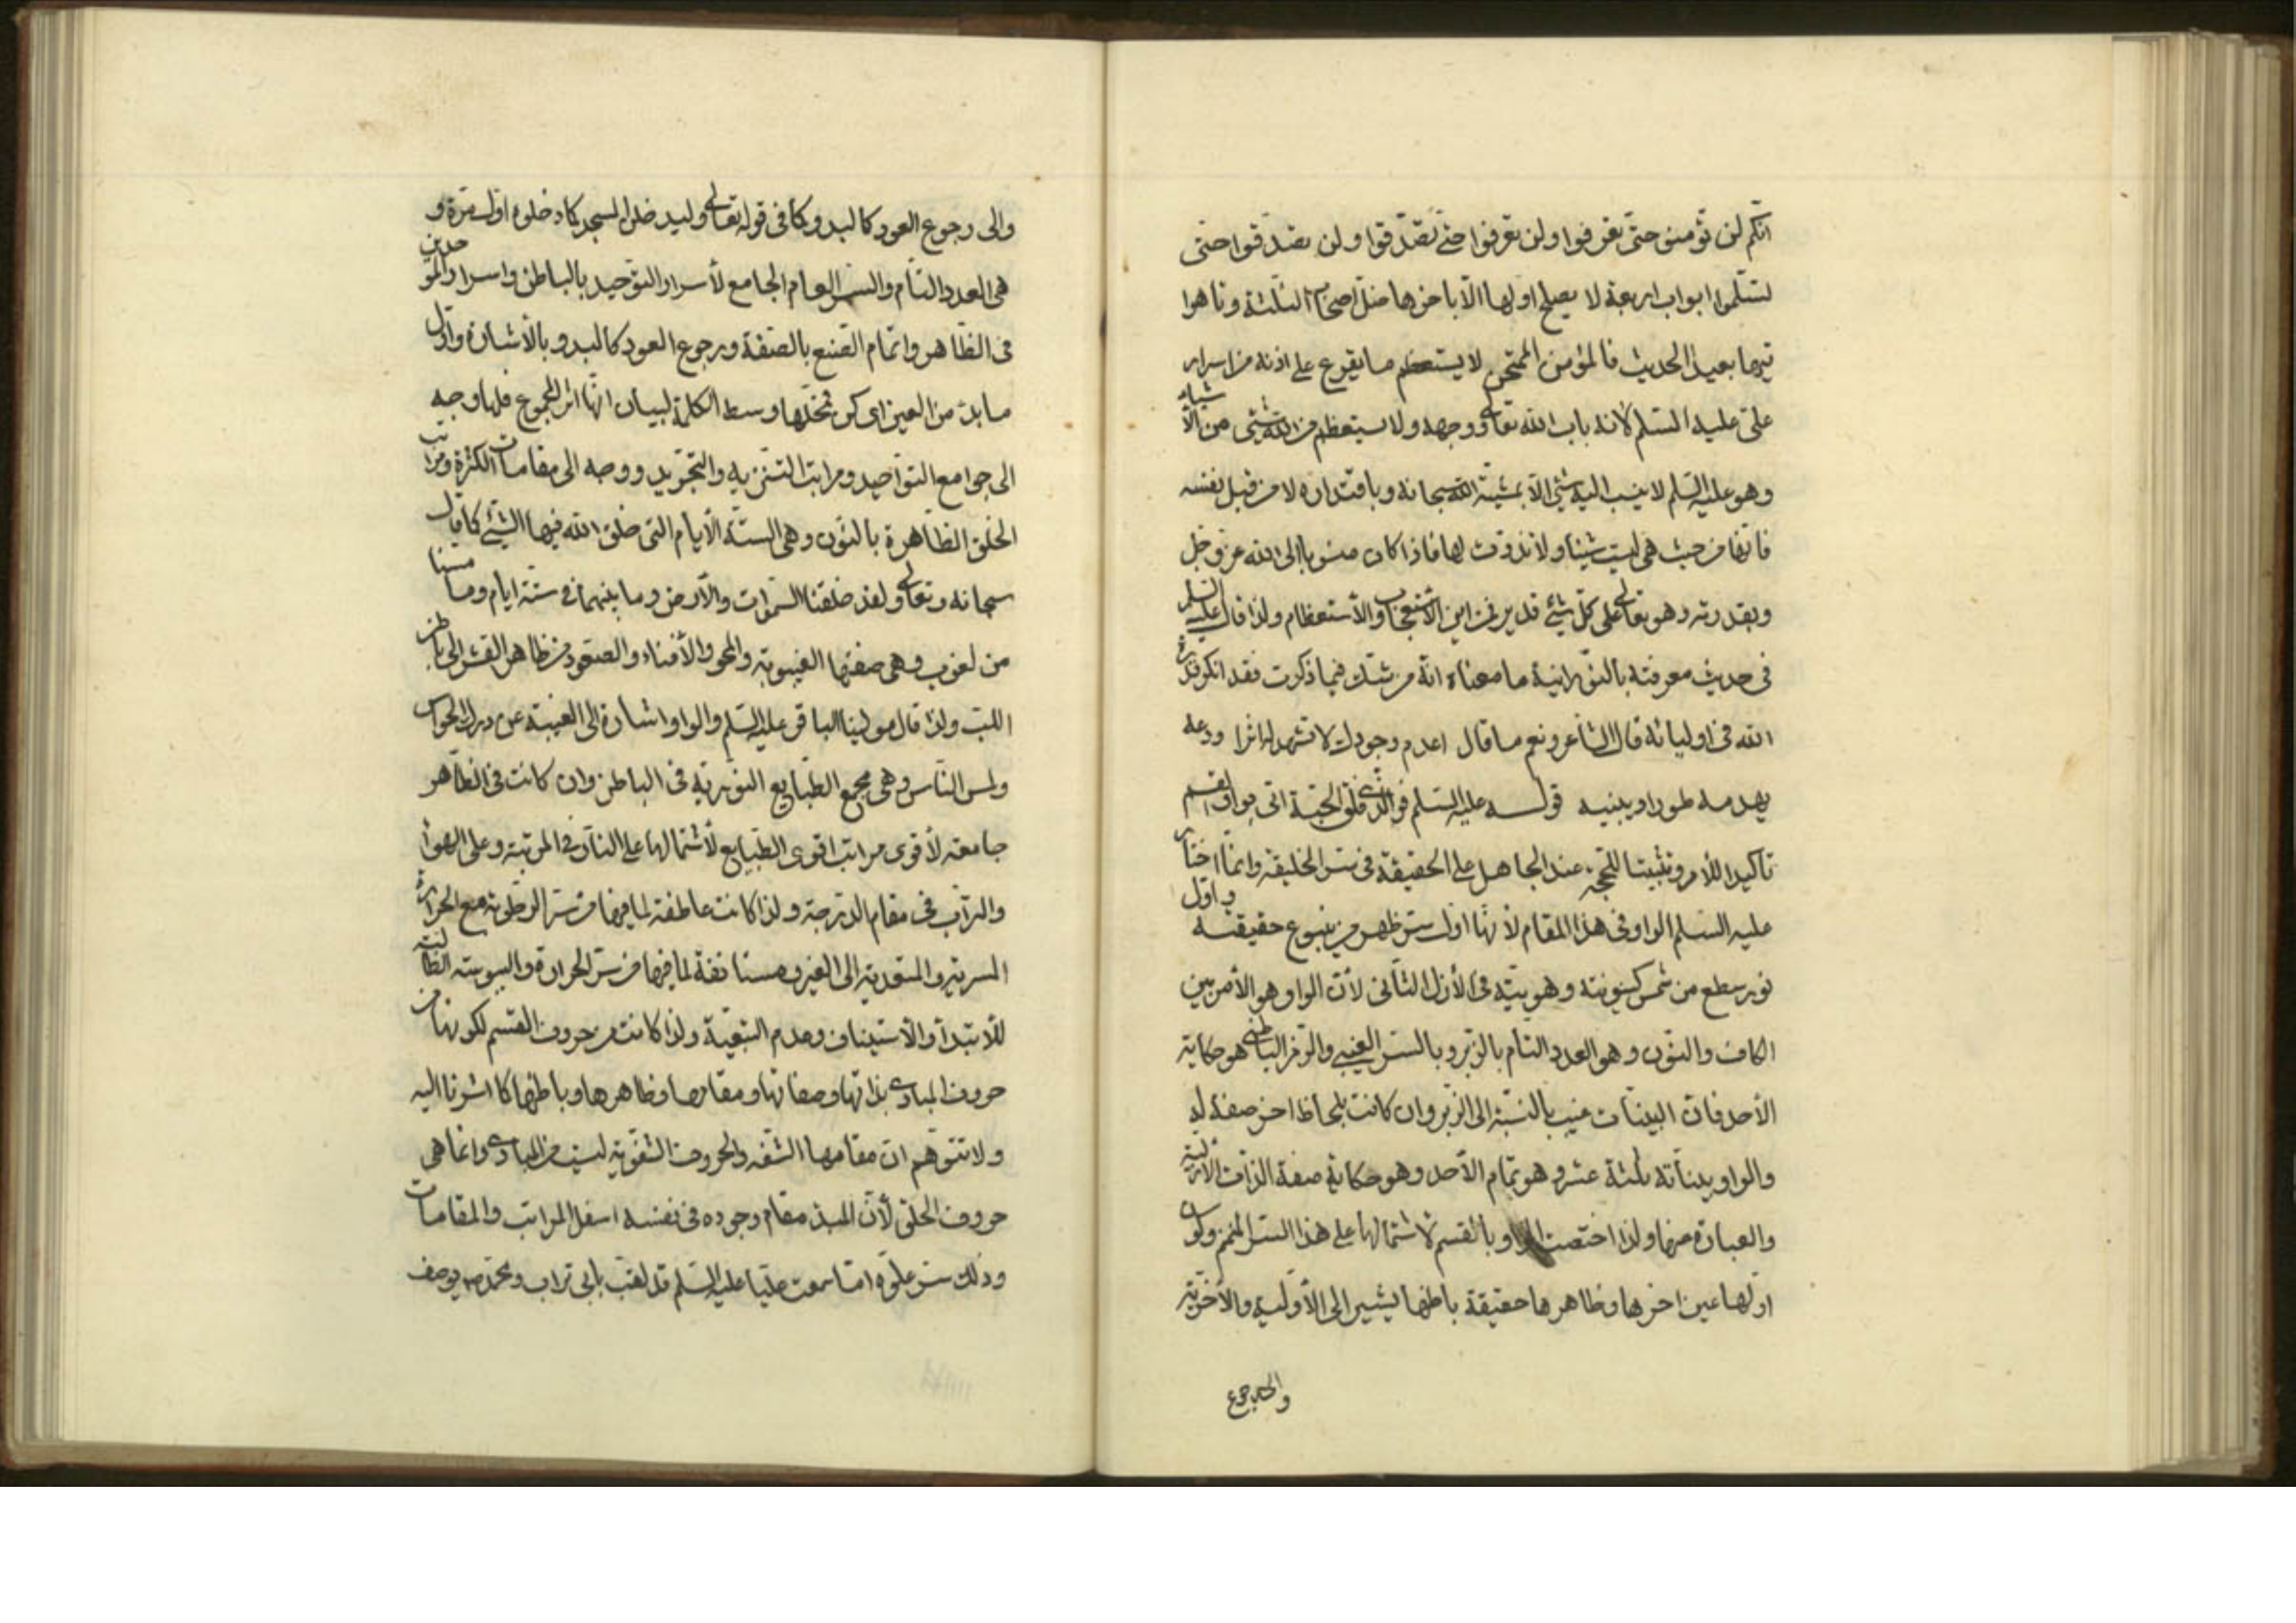 انّكم لن تؤمنوا حتّى تعرفوا ولن تعرفوا حتّى تصدّقوا ولن تصدقوا حتّى
تسلّموا ابوابا اربعة لا يصلح اولها الّا باخرها ضلّ اصحاب الثلثة وتاهوا
تيها بعيدا الحديث فالمؤمن الممتحن لا يستعظم ما يقرع على اذنه من اسرار
علىّ عليه السّلم لانه باب الله تعالى ووجهه ولا يستعظم من الله شئ من الأشياء
وهو عليه السّلم لا ينسب اليه شئ الّا بمشيّة الله سبحانه وباقتداره لا من قبل نفسه
فانّها من حيث هى ليست شيئا ولا تذوّت لها فاذا كان منسوبا الى الله عزّ وجل
وبقدرته وهو تعالى على كلّ شئ قدير فمن اين الأستعجاب والأستعظام ولذا قال عليه السلم
فى حديث معرفته بالنّورانية ما معناه انّه من شكّ فيما ذكرت فقد انكر قدرة
الله فى اوليائه قال الشاعر ونعم ما قال اعدم وجودك لا تشهد له اثرا ودعه
يهدمه طورا ويبنيه قوله عليه السّلم فو الّذى فلق الحبّة اتى بواو القسم
تأكيدا للأمر وتثبيتا للحجّة عند الجاهل على الحقيقة فى سرّ الخليقة وانّما اختار
عليه السلم الواو فى هذا المقام لأنّها اوّل سرّ ظهر من ينبوع حقيقته واوّل
نور سطع من شمس كينونته وهويّته فى الأزل الثانى لأنّ الواو هو الأمر بين
الكاف والنّون وهو العدد التام بالزّبر وبالسّر الغيبى والرّمز الباطنى هو حكاية
الأحد فانّ البينات غيب بالنّسبة الى الزّبر وان كانت بلحاظ اخر صفة له
والواو بيناته ثلثة عشر وهو تمام الأحد وهو حكاية صفة الذّات الأزلية
والعبارة عنها ولذا اختصت الواو بالقسم لاشتمالها على هذا السّر المنمنم ولكون
اوّلها عين اخرها وظاهرها حقيقة باطنها يشير الى الأوّليه والأخريّة
والى رجوع
والى رجوع العود كالبدو كما فى قوله تعالى وليدخلوا المسجد كما دخلوه اوّل مرّة و
هى العدد التّام والسّر العام الجامع لأسرار التّوحيد بالباطن واسرار الموحدين
فى الظّاهر واتمام الصّنع بالصّفة ورجوع العود كالبدو بالأشارة واوّل
ما بدء من العين اى كن تخللها وسط الكلمة لبيان انّها اثر المجموع فلها وجه
الى جوامع التّواحيد ومراتب التّنزيه والتّجريد ووجه الى مقامات الكثرة ومراتب
الخلق الظّاهرة بالنّون وهى الستّة الأيام التى خلق الله فيها الشئ كما قال
سبحانه وتعالى ولقد خلقنا السّموات والأرض وما بينهما فى ستّة ايام وما مسّنا
من لغوب وهى صفتها الغيبوبة والمحو والأفناء والصّعود من ظاهر القشر الى باطن
اللّب ولذا قال مولينا الباقر عليه السّلم والواو اشارة الى الغيبة عن درك الحواس
ولمس النّاس وهى مجمع الطّبايع النّوريّة فى الباطن وان كانت فى الظّاهر
جامعة لأقوى مراتب اقوى الطّبايع لأشتمالها على النّار فى المرتبة وعلى الهواء
والتراب فى مقام الدّرجة ولذا كانت عاطفة لما فيها من سرّ الرّطوبة مع الحرارة
السرية والمتعدية الى الغير ومستانفة لما فيها من سرّ الحرارة واليبوسة الطالبة
للأبتداء والأستيناف وعدم التبعيّة ولذا كانت من حروف القسم لكونها من
حروف المبادى بذاتها وصفاتها ومقامها وظاهرها وباطنها كما اشرنا اليه
ولا تتوهّم انّ مقامها الشّفه والحروف الشّفوية ليست من المبادى وانّما هى
حروف الحلق لأنّ المبدء مقام وجوده فى نفسه اسفل المراتب والمقامات
وذلك سرّ علوّه اما سمعت عليّا عليه السّلم قد لقّب بابى تراب ومحمّد ص يوصف